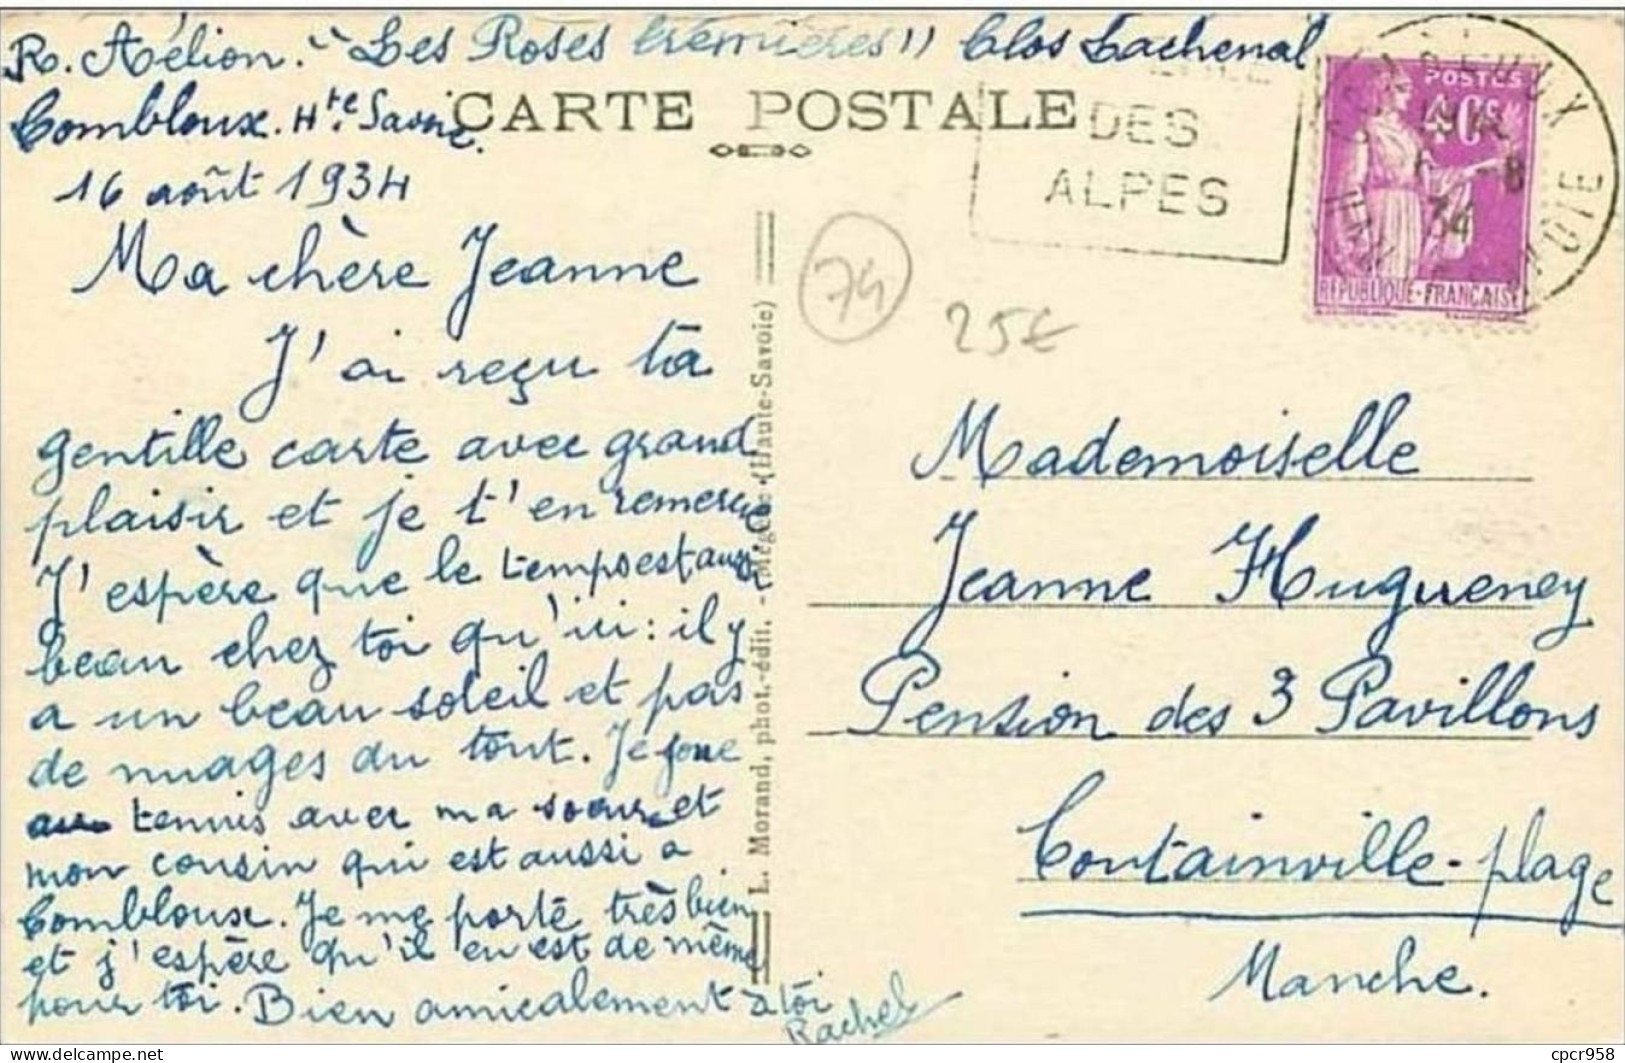 R. Aélion. "Les Roses trémières" Clos Lachenal
Combloux. Hte Savoie.
16 août 1934
CARTE POSTALE
DES
ALPES
POSTES
40c
34
REPUBLIQUE-FRANÇAISE
Ma chère Jeanne
J'ai reçu ta
gentille carte avec grand
plaisir et je t'en remercie
J'espère que le temps est aussi
beau chez toi qu'ici : il y
a un beau soleil et pas
de nuages du tout. Je joue
au tennis avec ma soeur et
mon cousin qui est aussi a
Combloux. Je me porte très bien
et j'espère qu'il en est de même
pour toi. Bien amicalement à toi
Rachel
L. Morand, phot.-édit. - Megève (Haute-Savoie)
74
25€
Mademoiselle
Jeanne Hugueney
Pension des 3 Pavillons
Coutainville-plage
Manche.
cpcr958